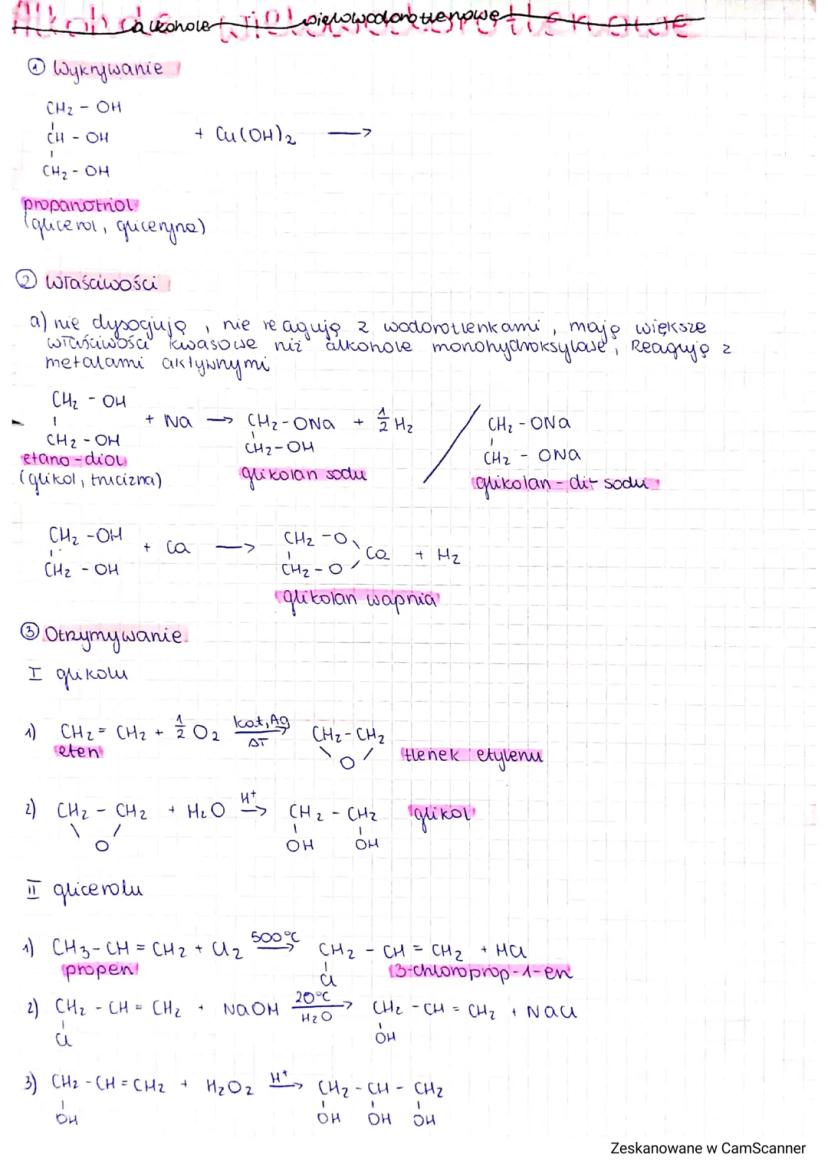 alkohole wielowodorotlenowe
① Wykrywanie
CH2 - OH
CH - OH + Cu(OH)2 →
CH2 - OH
propanotriol
(glicerol, gliceryna)
② Właściwości
a) nie dysocjują, nie reagują z wodorotlenkami, mają większe
właściwości kwasowe niż alkohole monohydroksylowe, Reagują z
metalami aktywnymi
CH2 - OH
+ Na → CH2-ONa + 1/2 H2 / CH2 - ONa
CH2 - OH CH2-OH CH2 - ONa
etano-diol glikolan sodu glikolan-di-sodu
(glikol, trucizna)
CH2 - OH CH2 - O
+ Ca → Ca + H2
CH2 - OH CH2 - O
glikolan wapnia
③ Otrzymywanie
I glikolu
1) CH2 = CH2 + 1/2 O2 kat, Ag → ΔT CH2-CH2
eten O tlenek etylenu
2) CH2 - CH2 + H2O H+ → CH2 - CH2 glikol
O OH OH
II glicerolu
1) CH3-CH = CH2 + Cl2 500°C → CH2 - CH = CH2 + HCl
propen Cl 3-chloroprop-1-en
2) CH2 - CH = CH2 + NaOH 20°C → H2O CH2 - CH = CH2 + NaCl
Cl OH
3) CH2 - CH = CH2 + H2O2 H+ → CH2 - CH - CH2
OH OH OH OH
Zeskanowane w CamScanner